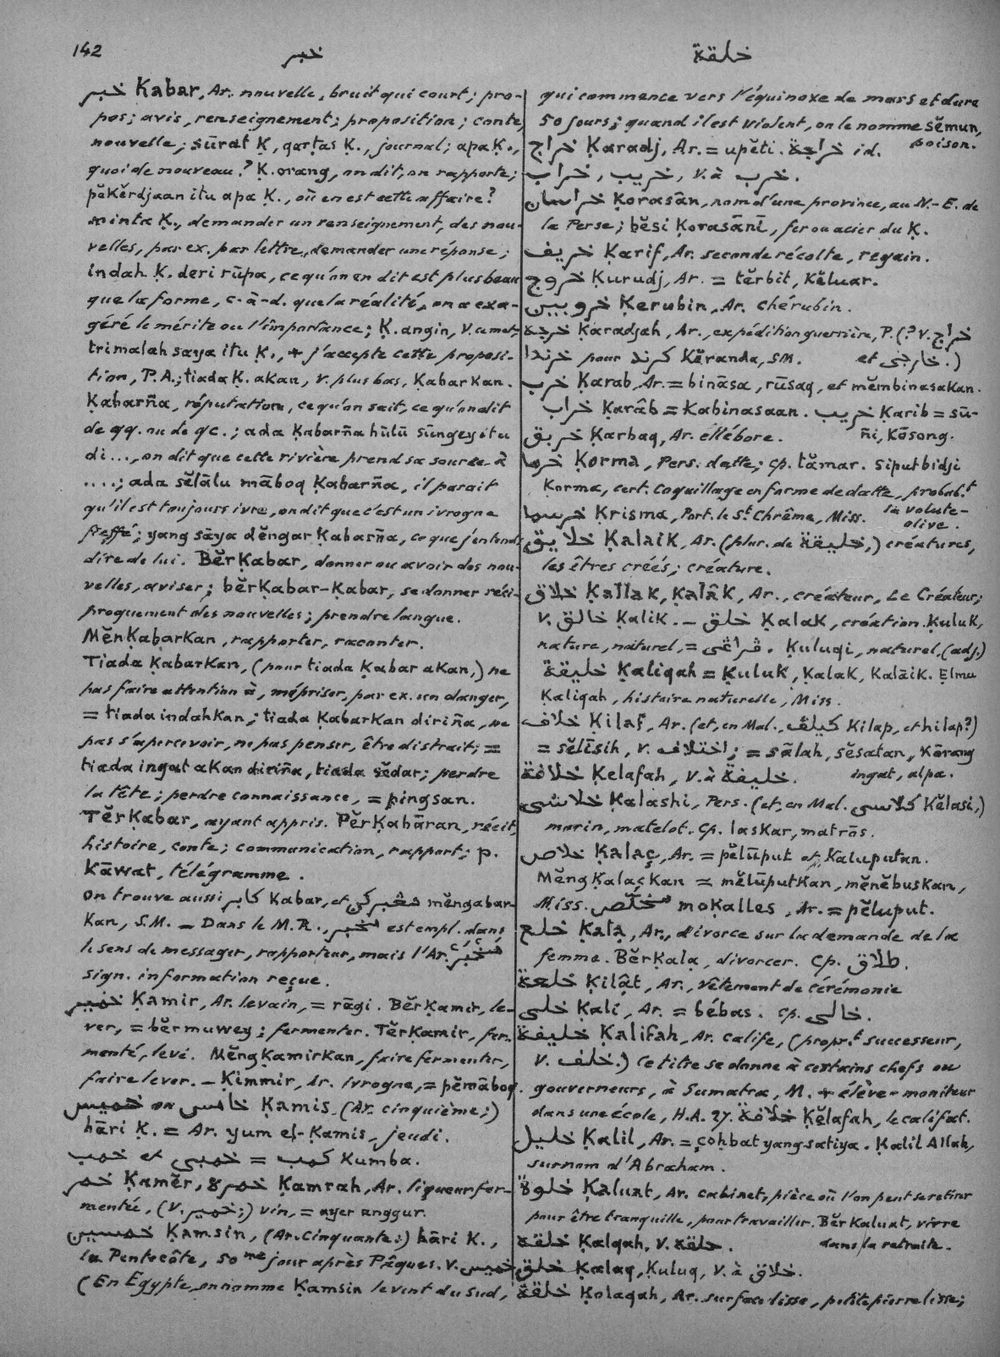 142
خبر
خلقة
خبر Ḳabar, Ar. nouvelle, bruit qui court; pro-
pos; avis, renseignement; proposition; conte,
nouvelle; sūrat Ḳ, qarṭas Ḳ., journal; apa Ḳ.,
quoi de nouveau? Ḳ. orang, on dit, on rapporte;
pĕkĕrdjaan itu apa Ḳ., où en est cette affaire?
minta Ḳ., demander un renseignement, des nou-
velles, par ex. par lettre, demander une réponse;
indah Ḳ. deri rūpa, ce qu'on en dit est plus beau
que la forme, c.-à-d. que la réalité, on a exa-
géré le mérite ou l'importance; Ḳ. angin, V.
trimalah saya itu Ḳ., + j'accepte cette proposi-
tion, P.A.; tiada Ḳ. akan, v. plus bas, Ḳabarkan.
Ḳabarña, réputation, ce qu'on sait, ce qu'on dit
de qq. ou de qc.; ada Ḳabarña hūlū sūngey itu
di..., on dit que cette rivière prend sa source à
....; ada sĕlālu māboq Ḳabarña, il parait
qu'il est toujours ivre, on dit que c'est un ivrogne
fieffé; yang sāya dĕngar Ḳabarña, ce que j'entends
dire de lui. BĕrḲabar, donner ou avoir des nou-
velles, aviser; bĕrḲabar-Ḳabar, se donner réci-
proquement des nouvelles; prendre langue.
MĕnḲabarkan, rapporter, raconter.
Tiada Ḳabarkan, (pour tiada Ḳabar akan,) ne
pas faire attention à, mépriser, par ex. un danger,
= tiada indahkan; tiada Ḳabarkan diriña, ne
pas s'apercevoir, ne pas penser, être distrait; =
tiada ingat akan diriña, tiada sĕdar; perdre
la tête; perdre connaissance, = pingsan.
TĕrḲabar, ayant appris. PĕrḲabāran, récit,
histoire, conte; communication, rapport; p.
Kāwat, télégramme.
On trouve aussi كابر Kabar, et مڠبركن mĕngabar-
kan, S.M. — Dans le M.R., مخبر est empl. dans
le sens de messager, rapporteur, mais l'Ar. مُخْبَر
sign. information reçue.
خمير Ḳamir, Ar. levain, = rāgi. BĕrḲamir, le-
ver, = bĕrmuwey; fermenter. TĕrḲamir, fer-
menté, levé. MĕngḲamirkan, faire fermenter,
faire lever. — Ḳimmir, Ar. ivrogne, = pĕmāboq.
خميس ou خامس Ḳamis, (Ar. cinquième;)
hāri Ḳ. = Ar. yum el-Ḳamis, jeudi.
خمب et خمبى = كمب Kumba.
خمر Ḳamĕr, خمرة Ḳamrah, Ar. liqueur fer-
mentée, (V. خمير;) vin, = ayer anggur.
خمسين Ḳamsin, (Ar. Cinquante;) hāri Ḳ.,
la Pentecôte, 50me jour après Pâques. V. خميس
(En Égypte, on nomme Ḳamsin le vent du sud,
qui commence vers l'équinoxe de mars et dure
50 jours; quand il est violent, on le nomme sĕmun,
poison.
خراج Ḳaradj, Ar. = upĕti. خراجة id.
خراب, خريب, V. à خرب.
خراسان Ḳorasān, nom d'une province, au N.-E. de
la Perse; bĕsi Ḳorasānī, fer ou acier du Ḳ.
خريف Ḳarif, Ar. seconde récolte, regain.
خروج Ḳurudj, Ar. = tĕrbit, Kĕluar.
خروبين Ḳerubin, Ar. chérubin.
خرجة Ḳaradjah, Ar., expédition guerrière, P. (? V. خراج
خرندا pour كرند Kĕranda, S.M. et خارجى.)
خرب Ḳarab, Ar. = bināsa, rūsaq, et mĕmbinasakan.
خراب Ḳarâb = Kabinasaan. خريب Ḳarib = sū-
ñi, Kōsong.
خربق Ḳarbaq, Ar. éllébore.
خرما Ḳorma, Pers. datte; cp. tămar. Siput bidji
Korma, cert. coquillage en forme de datte, probab.t
la volute-
olive.
خرسما Ḳrisma, Port. le St Chrême, Miss.
خلايق Ḳalaïk, Ar. (plur. de خليقة,) créatures,
les êtres créés; créature.
خلاق Ḳallak, Ḳalâk, Ar., créateur, Le Créateur;
V. خالق Ḳalik. — خلق Ḳalak, création. Ḳuluk,
nature, naturel, = ڤراڠى. Ḳuluqi, naturel, (adj.)
خليقة Ḳaliqah = Ḳuluk, Ḳalak, Ḳalāik. Elmu
Ḳaliqah, histoire naturelle, Miss.
خلاف Ḳilaf, Ar. (et, en Mal., كيلڤ Kilap, et hilap?)
= sĕlīsih, V. اختلاف; = sālah, sĕsatan, Kōrang
ingat, alpa.
خلافة Ḳelafah, V. à خليفة.
خلاشى Ḳalashi, Pers. (et, en Mal. كلاسى Kĕlasi,)
marin, matelot. Cp. laskar, matrōs.
خلاص Ḳalaç, Ar. = pĕlūput et Kaluputan.
MĕngḲalaçkan = mĕlūputkan, mĕnĕbuskan,
Miss. مخلّص moḲalles, Ar. = pĕluput.
خلع Ḳala, Ar., divorce sur la demande de la
femme. BĕrḲala, divorcer. Cp. طلاق.
خلعة Ḳilât, Ar., vêtement de cérémonie
خلى Ḳali, Ar. = bébas. cp. خالى.
خليفة Ḳalifah, Ar. calife, (propr.t successeur,
V. خلف.) Ce titre se donne à certains chefs ou
gouverneurs, à Sumatra, M. + élève-moniteur
dans une école, H.A. 27. خلافة Ḳĕlafah, le califat.
خليل Ḳalil, Ar. = çoḥbat yang satiya. Ḳalil Allah,
surnom d'Abraham.
خلوة Ḳaluat, Ar. cabinet, pièce où l'on peut se retirer
pour être tranquille, pour travailler. BĕrḲaluat, vivre
dans la retraite.
خلقة Ḳalqah, V. حلقة.
خلق Ḳalaq, Ḳuluq, V. à خلاق.
خلقة Ḳolaqah, Ar. surface lisse, petite pierre lisse;